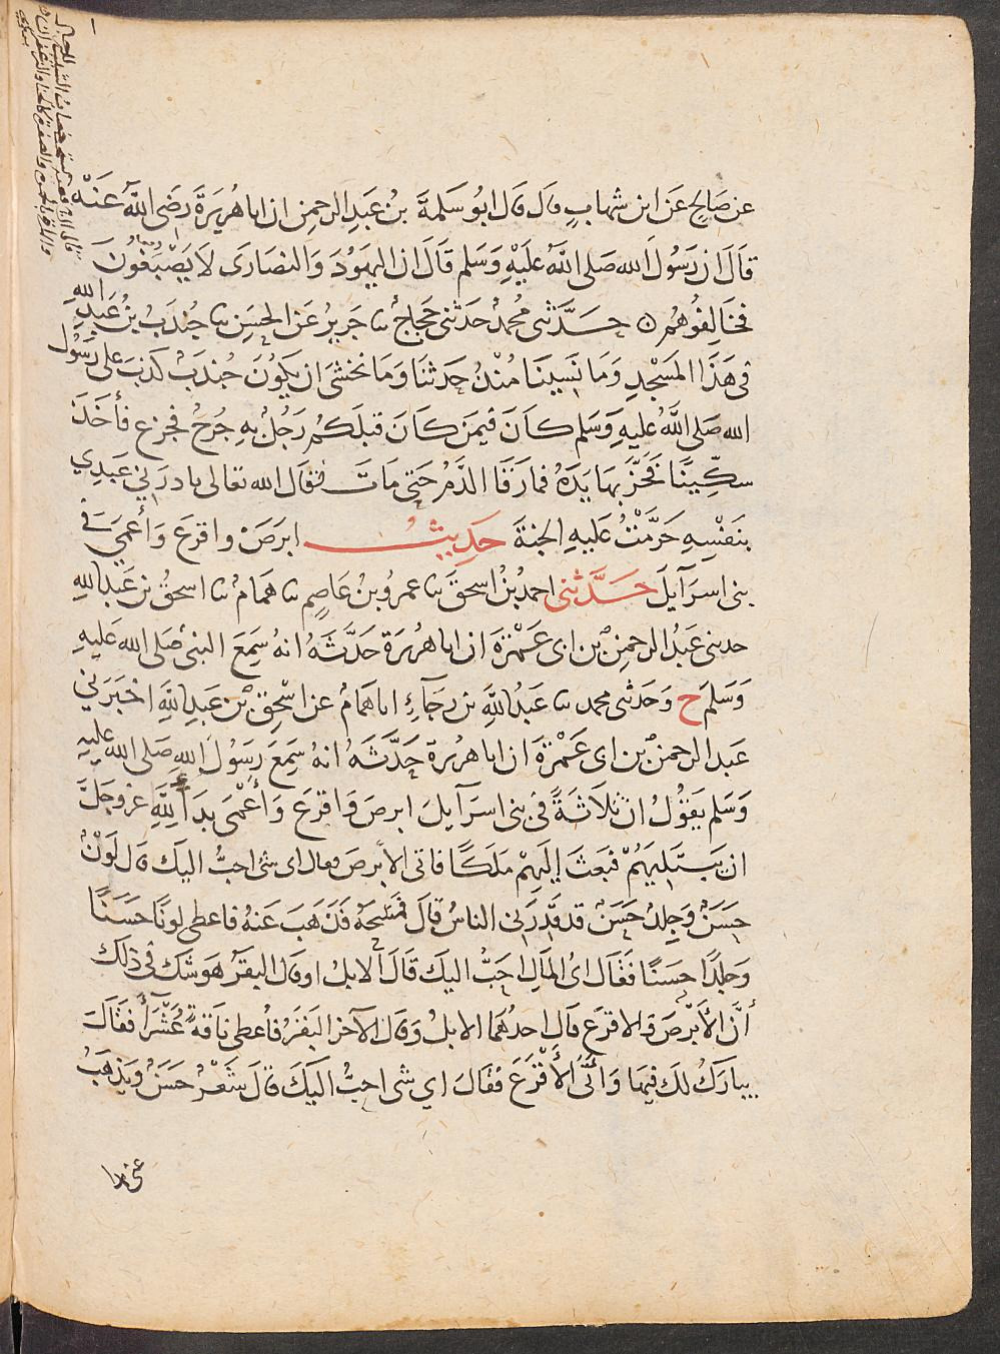 عن صَالِحٍ عَن ابن شهابٍ قال قال ابوُ سَلمةَ بنُ عَبدِ الرحمنِ ان ابا هُرَيرَةَ رضى اللَّهُ عَنْه
قالَ ان رَسُولَ الله صَلى اللَّهُ عَلَيْهِ وَسَلم قالَ ان اليهُودَ وَالنصَارَى لَا يَصْبِغُونَ
فخَالِفُوهُم ٥ حَدَّثنى مُحمدٌ حَدثنى حَجاجٌ ثنا جَرِيرٌ عَن الحسَنِ ثنا جُندَبُ بنُ عَبدِ اللهِ
فى هَذَا المَسْجِدِ وَمَا نَسِينَا مُنْذُ حَدثنَا وَمَا نخشَى ان يَكوُنَ جُندَبٌ كذبَ على رَسُول
الله صَلى اللَّهُ عليهِ وَسَلم كاَنَ فيمَن كانَ قبلَكُم رَجُلٌ بهِ جُرحٌ فجزِع فأخَذَ
سكِّينًا فَحَزَّ بهَا يَدَهُ فمَا رَقَا الدَّمُ حَتى مَاتَ فقال الله تعالى بادرَنِي عَبدِي
بنَفْسِهِ حَرَّمْتُ عَليهِ الجنةَ حَدِيثُ ابرَصَ واقرَعَ وَأَعمَى فى
بنى اسرَآيلَ حَدَّثنى احمدُ بنُ اسحقَ ثنا عمروُ بنُ عَاصِمٍ ثنا همَامٌ ثنا اسحقُ بن عَبدِ اللهِ
حدثنى عَبدُ الرحمنِ بن ابى عَمْرَةَ ان ابا هُرَيرَة حَدَّثَهُ انهُ سَمِعَ النبىَّ صَلى الله عَليهِ
وَسَلمَ ح وَحَدثنى محمد ثنا عَبدُ اللَّهِ بن رجَآءٍ انا همَامٌ عن اسْحقَ بن عَبدِ اللَّهِ اخبَرَني
عَبد الرحمن بن ابى عَمْرَةَ ان ابا هرُيرة حَدَّثَهُ انهُ سَمِعَ رَسُولَ اللهِ صَلى الله عليهِ
وَسَلم يَقوُلُ ان ثلَاثةً فى بنى اسرَآيلَ ابرصَ وَاقرَعَ وَأعْمَى بدَأ لِلَّهِ عز وجَلَّ
ان يَبتَلِيَهُمْ فبعَثَ إلَيهِمْ مَلَكًا فاتى الأبرصَ فقال اى شىءٍ احبُّ اليكَ قال لَوْنٌ
حسَنٌ وَجِلدٌ حَسَنٌ قد قَذِرَنى الناسُ قالَ فمسَحهُ فذَهبَ عَنهُ فاعطى لونًا حَسَنًا
وَجلدًا حسَنًا فَقال اىُّ المَالِ احَبُّ اليكَ قالَ الابلُ او قال البقَرُ هوَ شكَّ فى ذلك
أنَّ الأبْرصَ والاقرعَ قال احدُهُمَا الابلُ وَقالَ الآخرُ البَقَرُ فأعطى ناقةً عُشَرَآءَ فقالَ
يبارَكُ لكَ فيهَا وَأتَى الأقْرَعَ فقالَ اي شىءٍ احبُّ اليكَ قالَ شَعْرٌ حَسَنٌ وَيذهَبُ
عنى هذا